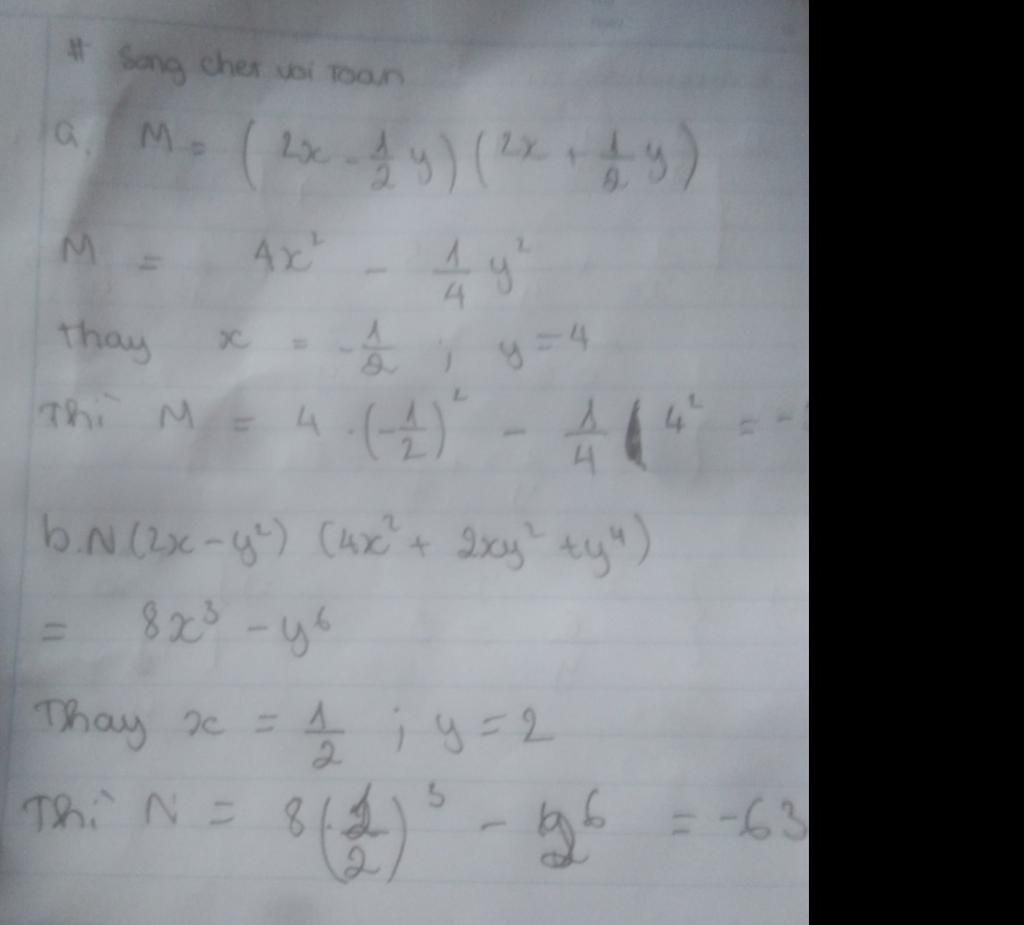 # Song chet voi Toan
a. M = (2x - 1/2 y) (2x + 1/2 y)
M = 4x² - 1/4 y²
thay x = -1/2 ; y = 4
Thì M = 4 . (-1/2)² - 1/4 4² = -
b. N (2x - y²) (4x² + 2xy² + y⁴)
= 8x³ - y⁶
Thay x = 1/2 ; y = 2
Thì N = 8 (1/2)³ - 2⁶ = -63